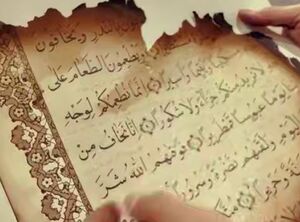 بِالنَّذْرِ وَيَخَافُونَ
مُسْتَطِيرًا وَيُطْعِمُونَ الطَّعَامَ عَلَى
وَيَتِيمًا وَأَسِيرًا إِنَّمَا نُطْعِمُكُمْ لِوَجْهِ
لَا نُرِيدُ مِنْكُمْ جَزَاءً وَلَا شُكُورًا إِنَّا نَخَافُ مِنْ
يَوْمًا عَبُوسًا قَمْطَرِيرًا فَوَقَاهُمُ اللَّهُ شَرَّ
وَلَقَّاهُمْ نَضْرَةً وَسُرُورًا